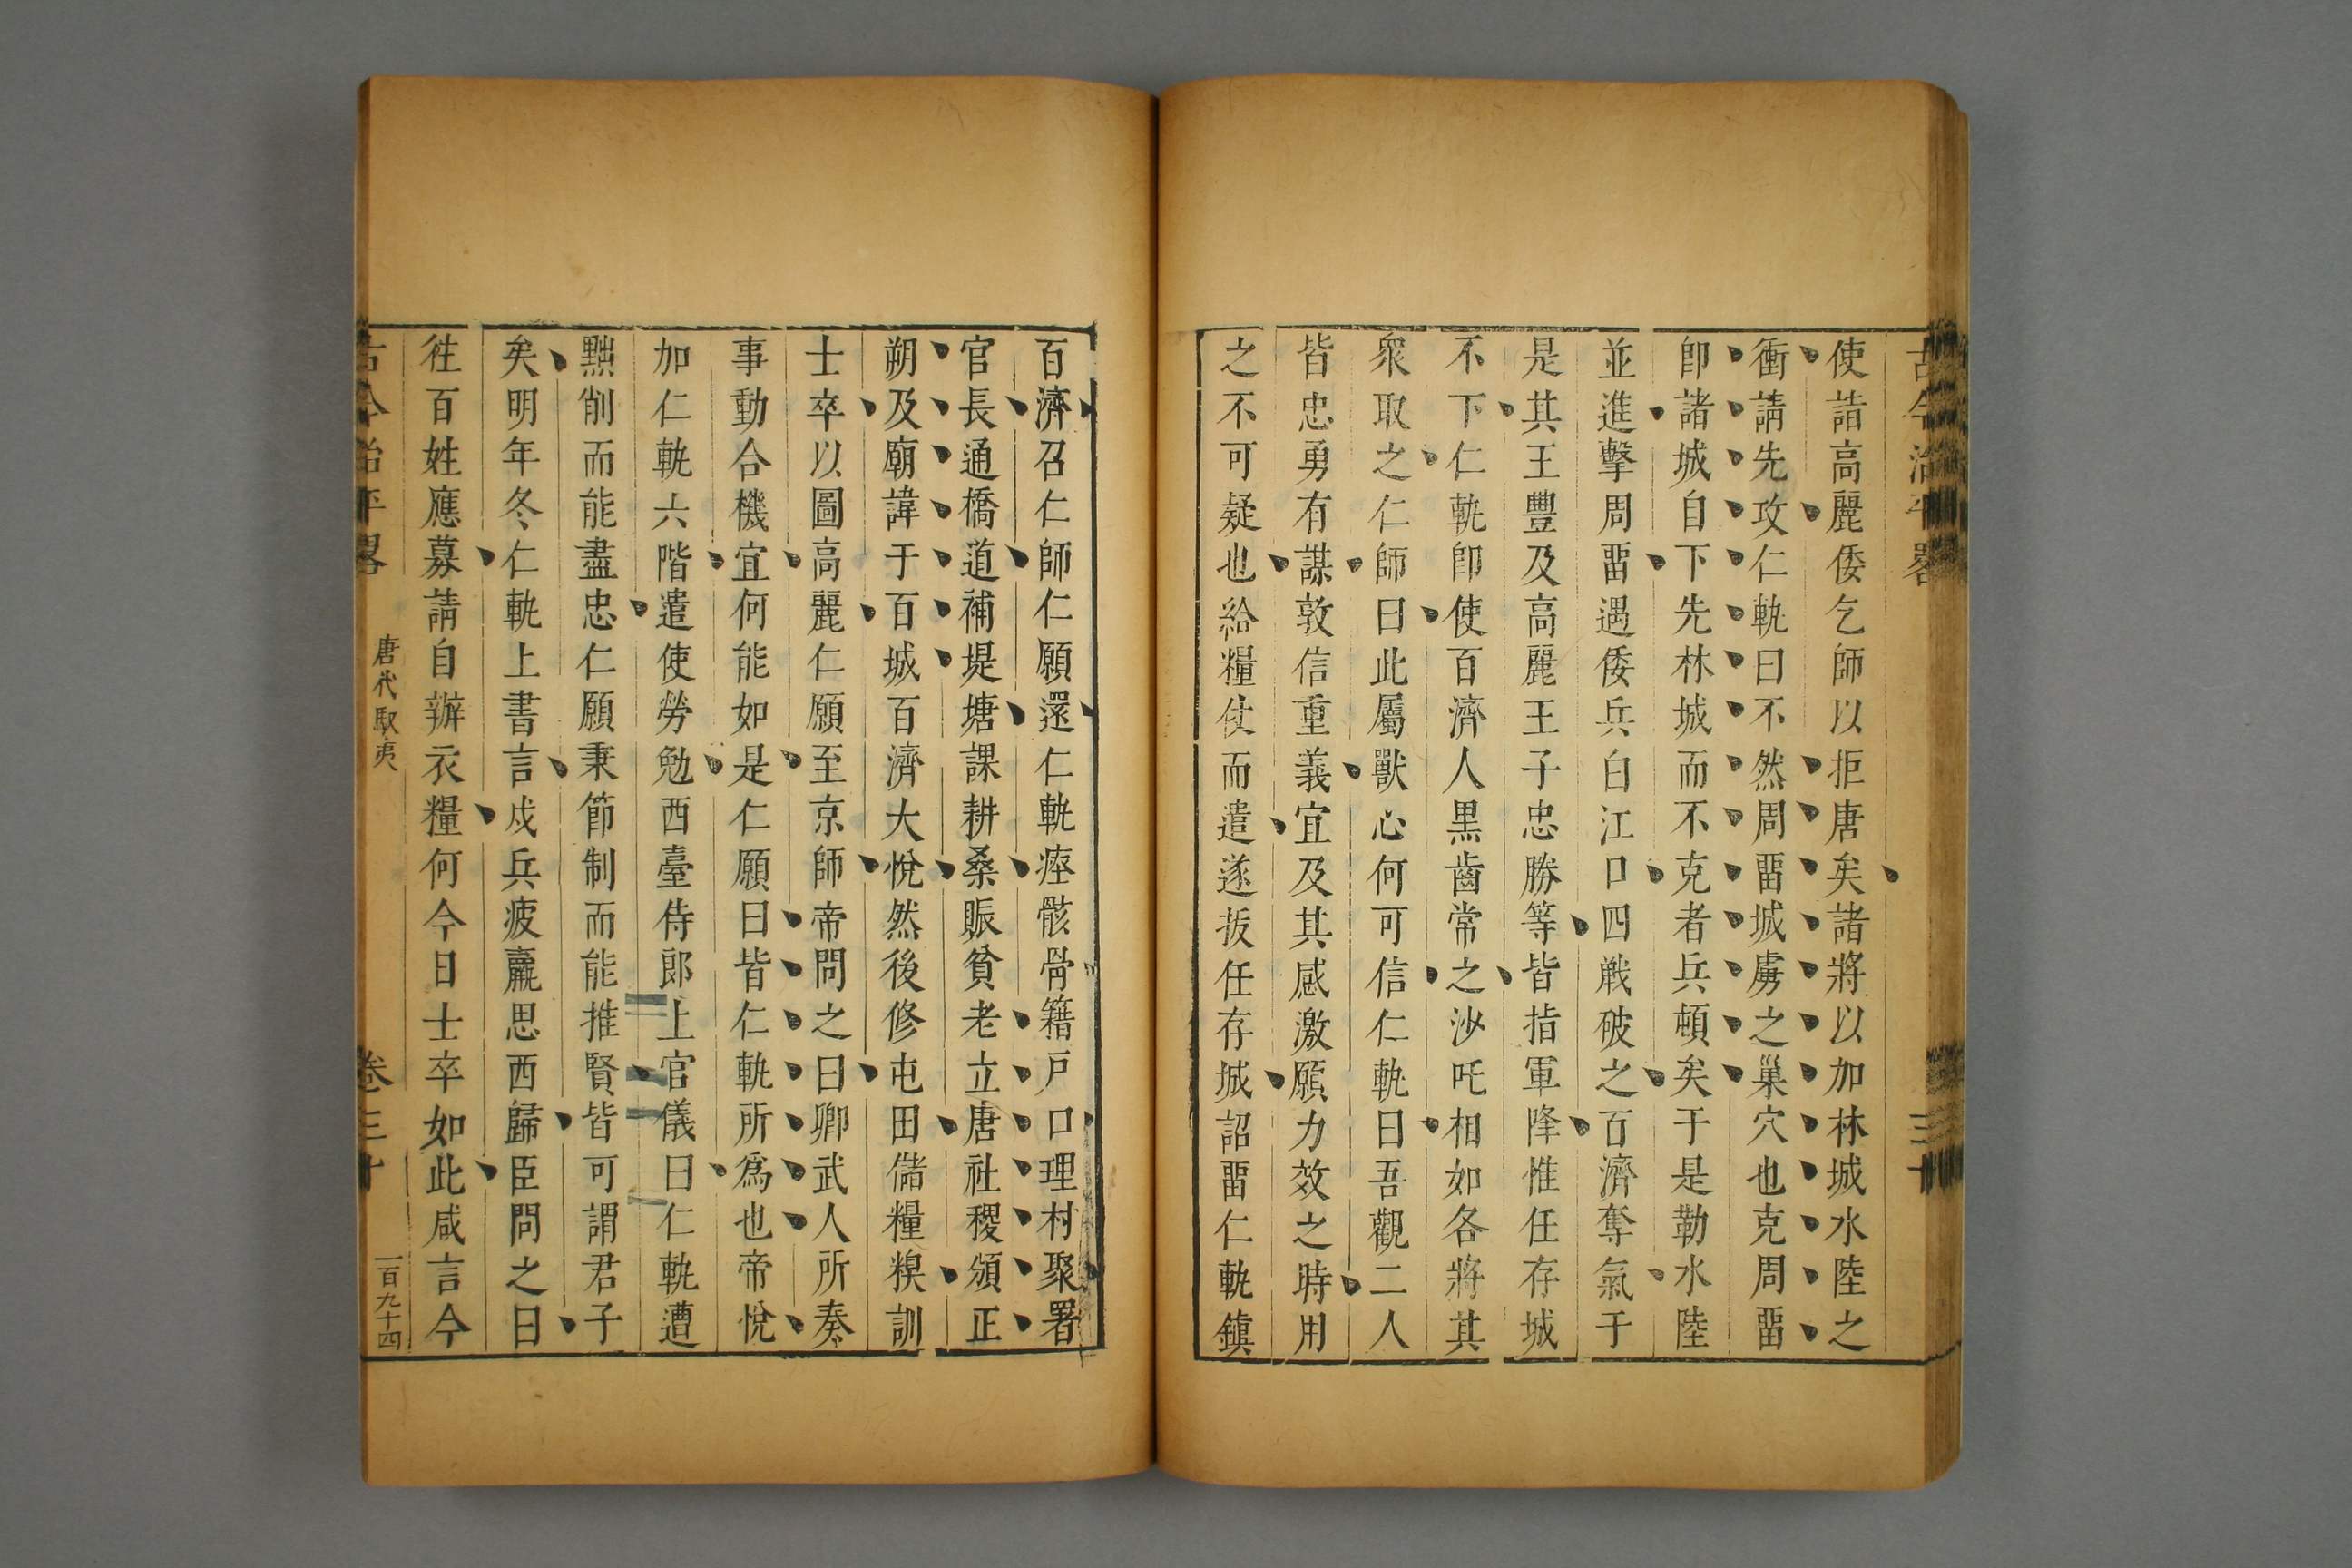 古今治平畧
三十
使詣高麗倭乞師以拒唐矣諸將以加林城水陸之
衝請先攻仁軌曰不然周畱城虜之巢穴也克周畱
卽諸城自下先林城而不克者兵頓矣于是勒水陸
並進擊周畱遇倭兵白江口四戰破之百濟奪氣于
是其王豐及高麗王子忠勝等皆指軍降惟任存城
不下仁軌卽使百濟人黑齒常之沙吒相如各將其
衆取之仁師曰此屬獸心何可信仁軌曰吾觀二人
皆忠勇有謀敦信重義宜及其感激願力效之時用
之不可疑也給糧仗而遣遂拔任存城詔畱仁軌鎮
百濟召仁師仁願還仁軌瘞骸骨籍戸口理村聚署
官長通橋道補堤塘課耕桑賑貧老立唐社稷頒正
朔及廟諱于百城百濟大悅然後修屯田儲糧糗訓
士卒以圖高麗仁願至京師帝問之曰卿武人所奏
事動合機宜何能如是仁願曰皆仁軌所爲也帝悅
加仁軌六階遣使勞勉西臺侍郎上官儀曰仁軌遭
黜削而能盡忠仁願秉節制而能推賢皆可謂君子
矣明年冬仁軌上書言戍兵疲羸思西歸臣問之曰
徃百姓應募請自辦衣糧何今日士卒如此咸言今
古今治平畧
唐代馭夷
卷三十
一百九十四